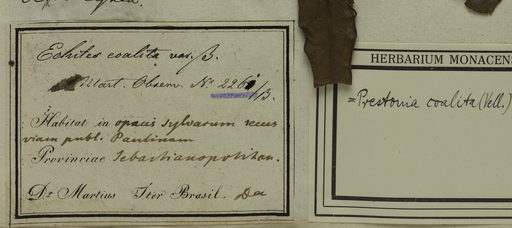 Echites coalita var. β.
Mart. Observ. Nº. 226
/β.
Habitat in opacis sylvarum secus
viam publ. Paulinam
Provinciae Sebastianopolitan.
Dr. Martius Iter Brasil.
HERBARIUM MONACENS
= Prestonia coalita (Vell.)